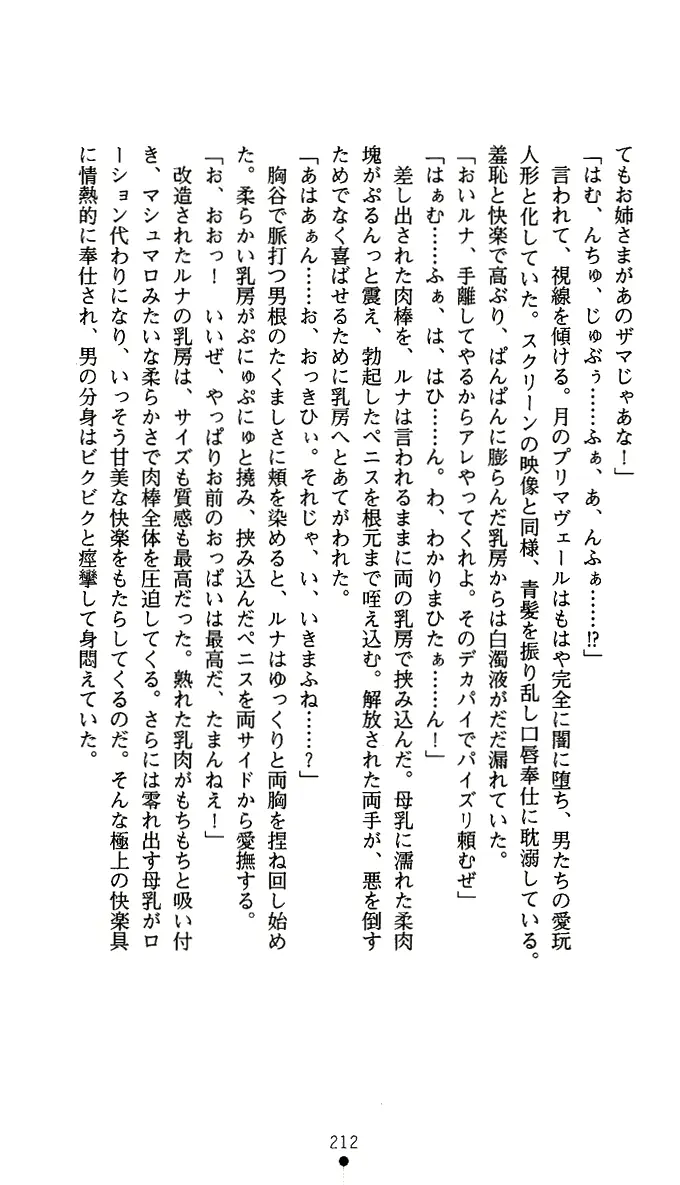 てもお姉さまがあのザマじゃあな！」
「はむ、んちゅ、じゅぶぅ……ふぁ、あ、んふぁ……!?」
　言われて、視線を傾ける。月のプリマヴェールはもはや完全に闇に堕ち、男たちの愛玩
人形と化していた。スクリーンの映像と同様、青髪を振り乱し口唇奉仕に耽溺している。
羞恥と快楽で高ぶり、ぱんぱんに膨らんだ乳房からは白濁液がだだ漏れていた。
「おいルナ、手離してやるからアレやってくれよ。そのデカパイでパイズリ頼むぜ」
「はぁむ……ふぁ、は、はひ……ん。わ、わかりまひたぁ……ん！」
　差し出された肉棒を、ルナは言われるままに両の乳房で挟み込んだ。母乳に濡れた柔肉
塊がぷるんっと震え、勃起したペニスを根元まで咥え込む。解放された両手が、悪を倒す
ためでなく喜ばせるために乳房へとあてがわれた。
「あはあぁん……お、おっきひぃ。それじゃ、い、いきまふね……？」
　胸谷で脈打つ男根のたくましさに頬を染めると、ルナはゆっくりと両胸を捏ね回し始め
た。柔らかい乳房がぷにゅぷにゅと撓み、挟み込んだペニスを両サイドから愛撫する。
「お、おおっ！　いいぜ、やっぱりお前のおっぱいは最高だ、たまんねえ！」
　改造されたルナの乳房は、サイズも質感も最高だった。熟れた乳肉がもちもちと吸い付
き、マシュマロみたいな柔らかさで肉棒全体を圧迫してくる。さらには零れ出す母乳がロ
ーション代わりになり、いっそう甘美な快楽をもたらしてくるのだ。そんな極上の快楽具
に情熱的に奉仕され、男の分身はビクビクと痙攣して身悶えていた。
212